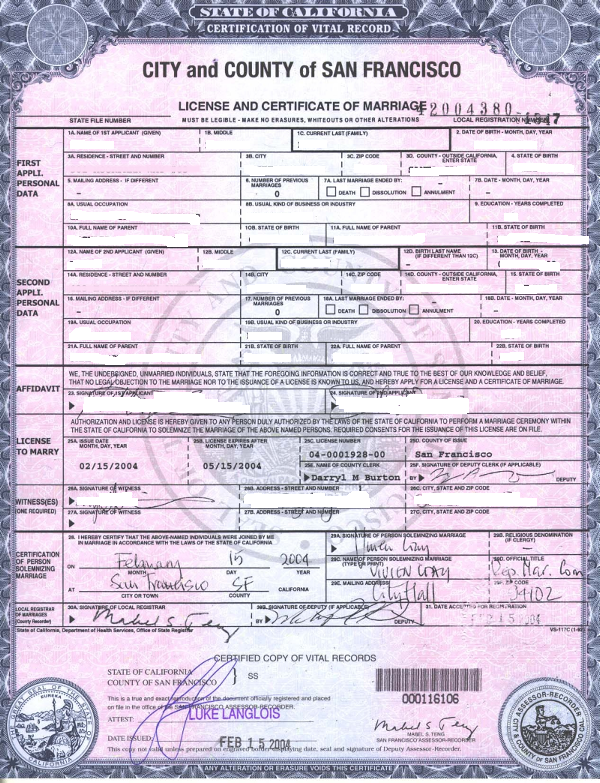 STATE OF CALIFORNIA
CERTIFICATION OF VITAL RECORD
CITY and COUNTY of SAN FRANCISCO
LICENSE AND CERTIFICATE OF MARRIAGE
MUST BE LEGIBLE - MAKE NO ERASURES, WHITEOUTS OR OTHER ALTERATIONS
2004380
STATE FILE NUMBER
LOCAL REGISTRATION NUMBER
FIRST APPLI. PERSONAL DATA
1A. NAME OF 1ST APPLICANT (GIVEN) 1B. MIDDLE 1C. CURRENT LAST (FAMILY) 2. DATE OF BIRTH - MONTH, DAY, YEAR
3A. RESIDENCE - STREET AND NUMBER 3B. CITY 3C. ZIP CODE 3D. COUNTY - OUTSIDE CALIFORNIA, ENTER STATE 4. STATE OF BIRTH
5. MAILING ADDRESS - IF DIFFERENT 6. NUMBER OF PREVIOUS MARRIAGES 7A. LAST MARRIAGE ENDED BY: 7B. DATE - MONTH, DAY, YEAR
– 0 DEATH DISSOLUTION ANNULMENT –
8A. USUAL OCCUPATION 8B. USUAL KIND OF BUSINESS OR INDUSTRY 9. EDUCATION - YEARS COMPLETED
10A. FULL NAME OF PARENT 10B. STATE OF BIRTH 11A. FULL NAME OF PARENT 11B. STATE OF BIRTH
SECOND APPLI. PERSONAL DATA
12A. NAME OF 2ND APPLICANT (GIVEN) 12B. MIDDLE 12C. CURRENT LAST (FAMILY) 12D. BIRTH LAST NAME (IF DIFFERENT THAN 12C) 13. DATE OF BIRTH - MONTH, DAY, YEAR
14A. RESIDENCE - STREET AND NUMBER 14B. CITY 14C. ZIP CODE 14D. COUNTY - OUTSIDE CALIFORNIA, ENTER STATE 15. STATE OF BIRTH
16. MAILING ADDRESS - IF DIFFERENT 17. NUMBER OF PREVIOUS MARRIAGES 18A. LAST MARRIAGE ENDED BY: 18B. DATE - MONTH, DAY, YEAR
– 0 DEATH DISSOLUTION ANNULMENT –
19A. USUAL OCCUPATION 19B. USUAL KIND OF BUSINESS OR INDUSTRY 20. EDUCATION - YEARS COMPLETED
21A. FULL NAME OF PARENT 21B. STATE OF BIRTH 22A. FULL NAME OF PARENT 22B. STATE OF BIRTH
AFFIDAVIT
WE, THE UNDERSIGNED, UNMARRIED INDIVIDUALS, STATE THAT THE FOREGOING INFORMATION IS CORRECT AND TRUE TO THE BEST OF OUR KNOWLEDGE AND BELIEF,
THAT NO LEGAL OBJECTION TO THE MARRIAGE NOR TO THE ISSUANCE OF A LICENSE IS KNOWN TO US, AND HEREBY APPLY FOR A LICENSE AND A CERTIFICATE OF MARRIAGE.
23. SIGNATURE OF 1ST APPLICANT 24. SIGNATURE OF 2ND APPLICANT
LICENSE TO MARRY
AUTHORIZATION AND LICENSE IS HEREBY GIVEN TO ANY PERSON DULY AUTHORIZED BY THE LAWS OF THE STATE OF CALIFORNIA TO PERFORM A MARRIAGE CEREMONY WITHIN
THE STATE OF CALIFORNIA TO SOLEMNIZE THE MARRIAGE OF THE ABOVE NAMED PERSONS. REQUIRED CONSENTS FOR THE ISSUANCE OF THIS LICENSE ARE ON FILE.
25A. ISSUE DATE MONTH, DAY, YEAR 25B. LICENSE EXPIRES AFTER MONTH, DAY, YEAR 25C. LICENSE NUMBER 25D. COUNTY OF ISSUE
02/15/2004 05/15/2004 04-0001928-00 San Francisco
25E. NAME OF COUNTY CLERK 25F. SIGNATURE OF DEPUTY CLERK (IF APPLICABLE)
Darryl M Burton BY DEPUTY
WITNESS(ES) (ONE REQUIRED)
26A. SIGNATURE OF WITNESS 26B. ADDRESS - STREET AND NUMBER 26C. CITY, STATE AND ZIP CODE
27A. SIGNATURE OF WITNESS 27B. ADDRESS - STREET AND NUMBER 27C. CITY, STATE AND ZIP CODE
CERTIFICATION OF PERSON SOLEMNIZING MARRIAGE
28. I HEREBY CERTIFY THAT THE ABOVE-NAMED INDIVIDUALS WERE JOINED BY ME
IN MARRIAGE IN ACCORDANCE WITH THE LAWS OF THE STATE OF CALIFORNIA
ON February 15 2004
MONTH DAY YEAR
AT San Francisco SF CALIFORNIA
CITY OR TOWN COUNTY
29A. SIGNATURE OF PERSON SOLEMNIZING MARRIAGE 29B. RELIGIOUS DENOMINATION (IF CLERGY)
–
29C. NAME OF PERSON SOLEMNIZING MARRIAGE (TYPE OR PRINT) 29D. OFFICIAL TITLE
Dep. Mar. Com
29E. MAILING ADDRESS 29F. ZIP CODE
City Hall 94102
LOCAL REGISTRAR OF MARRIAGES (County Recorder)
30A. SIGNATURE OF LOCAL REGISTRAR 30B. SIGNATURE OF DEPUTY (IF APPLICABLE) 31. DATE ACCEPTED FOR REGISTRATION
Mabel S. Teng BY
State of California, Department of Health Services, Office of State Registrar
CERTIFIED COPY OF VITAL RECORDS
STATE OF CALIFORNIA
CITY AND COUNTY OF SAN FRANCISCO
SS
This is a true and exact reproduction of the document officially registered and placed
on file in the office of the SAN FRANCISCO ASSESSOR-RECORDER.
ATTEST
LUKE LANGLOIS
DATE ISSUED
FEB 15 2004
000116106
Mabel S. Teng
MABEL S. TENG
SAN FRANCISCO ASSESSOR-RECORDER
This copy not valid unless prepared on engraved border displaying date, seal and signature of Deputy Assessor-Recorder.
ANY ALTERATION OR ERASURE VOIDS THIS CERTIFICATE